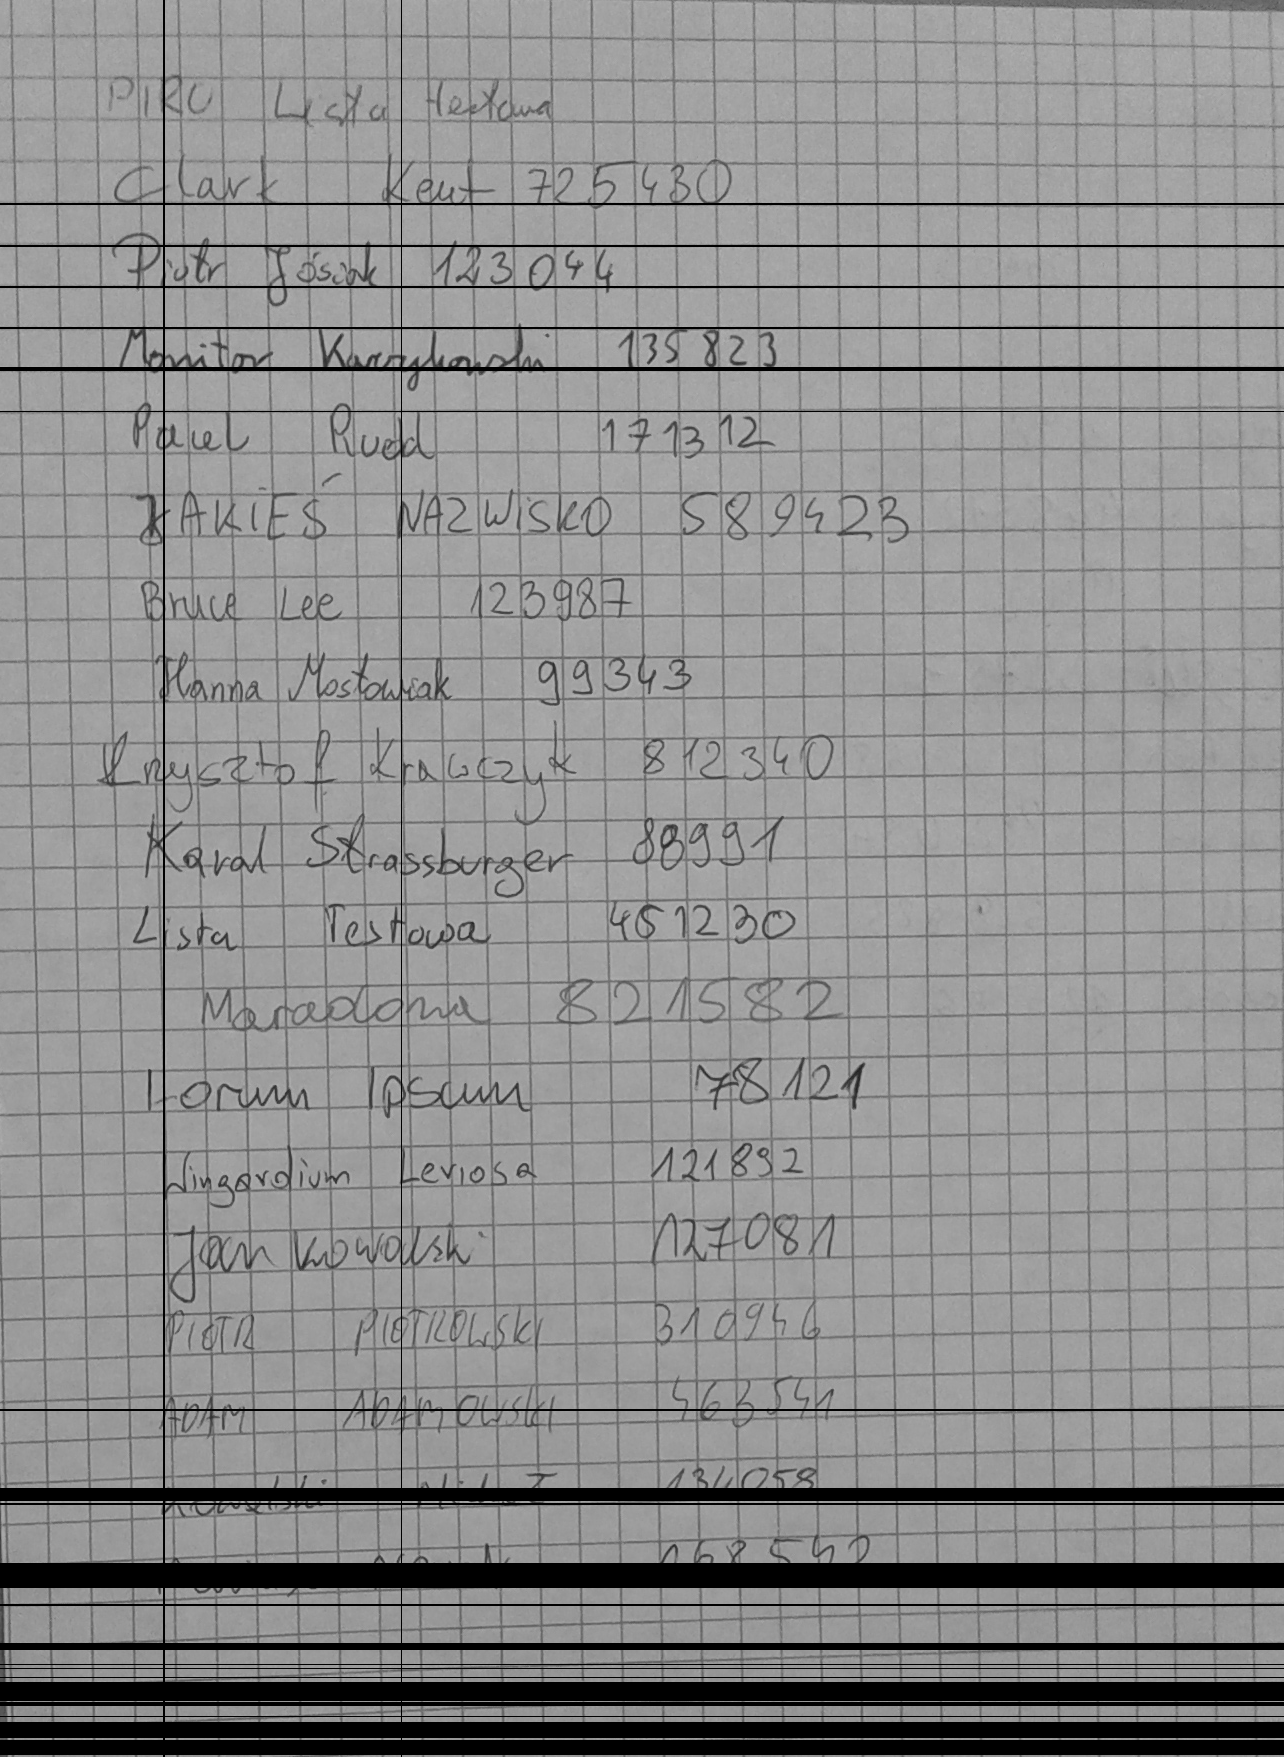 PIRO Lista testowa
Clark Kent 725430
Piotr Jósiak 123044
Monitor 135823
Paul Rudd 171312
JAKiEŚ NAZWiSKO 589423
Bruce Lee 123987
Hanna Mostowiak 99343
Krzysztof Krawczyk 812340
Karol Strassburger 88991
Lista Testowa 461230
Maradona 821582
Lorum Ipsum 78121
Wingardium Leviosa 121892
Jan Kowalski 127081
PIOTR PIOTROWSKI 310946
ADAM ADAMOWSKI 463541
Kowalski 134058